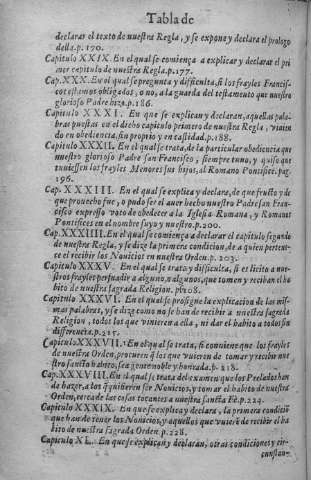 Tabla de
declarar el texto de nuestra Regla, y se expone y declara el prologo
della. p. 170.
Capitulo XXIX. En el qual se comiença a explicar y declarar el pri
mer capitulo de nuestra Regla. p. 177.
Cap. XXX. En el qual se pregunta y difficulta, si los frayles Francis-
cos estamos obligados, o no, a la guarda del testamento que nuestro
glorioso Padre hizo. p. 186.
Capitulo XXXI. En que se explican y declaran, aquellas pala-
bras puestas en el dicho capitulo primero de nuestra Regla, viuien
do en obediencia, sin proprio y en castidad. p. 188.
Capitulo XXXII. En el qual se trata, de la particular obediencia que
nuestro glorioso Padre san Francisco, siempre tuuo, y quiso que
tuuiessen los frayles Menores sus hijos, al Romano Pontifice. pag.
196.
Cap. XXXIII. En el qual se explica y declara, de que fructo y de
que prouecho fue, o pudo ser el auer hecho nuestro Padre san Fran-
cisco expresso voto de obedecer a la Iglesia Romana, y Romanos
Pontifices en el nombre suyo y nuestro. p. 200.
Cap. XXXIIII. En el qual se comiença a declarar el capitulo segundo
de nuestra Regla, y se dize la primera condicion, de a quien pertene-
ce el recibir los Nouicios en nuestra Orden. p. 203.
Capitulo XXXV. En el qual se trata y difficulta, si es licito a nue-
stros frayles persuadir a alguno, o algunos, que tomen y reciban el ha
bito de nuestra sagrada Religion. p. 208.
Capitulo XXXVI. En el qual se prosigue la explicacion de las mis-
mas palabras, y se dize como no se han de recibir a nuestra sagrada
Religion, todos los que vinieren a ella, ni dar el habito a todos sin
differencia. p. 215.
Capitulo XXXVII. En el qual se trata, si conuiene que los frayles
de nuestra Orden, procuren q̃ los que vuieren de tomar y recibir nue
stro sancto habito, sea gente noble y honrada. p. 218.
Cap. XXXVIII. En el qual se trata del examen que los Prelados han
de hazer, a los q̃ quisieren ser Nouicios, y tomar el habito de nuestra
Orden, cerca de las cosas tocantes a nuestra sancta Fè. p. 224.
Capitulo XXXIX. En que se explica y declara, la primera condiciõ
que han de tener los Nouicios, y aquellos que vuierẽ de recibir el ha
bito de nuestra sagrada Orden. p. 228.
Capitulo XL. En que se explican y declaran, otras condiciones y cir-
cunstan-